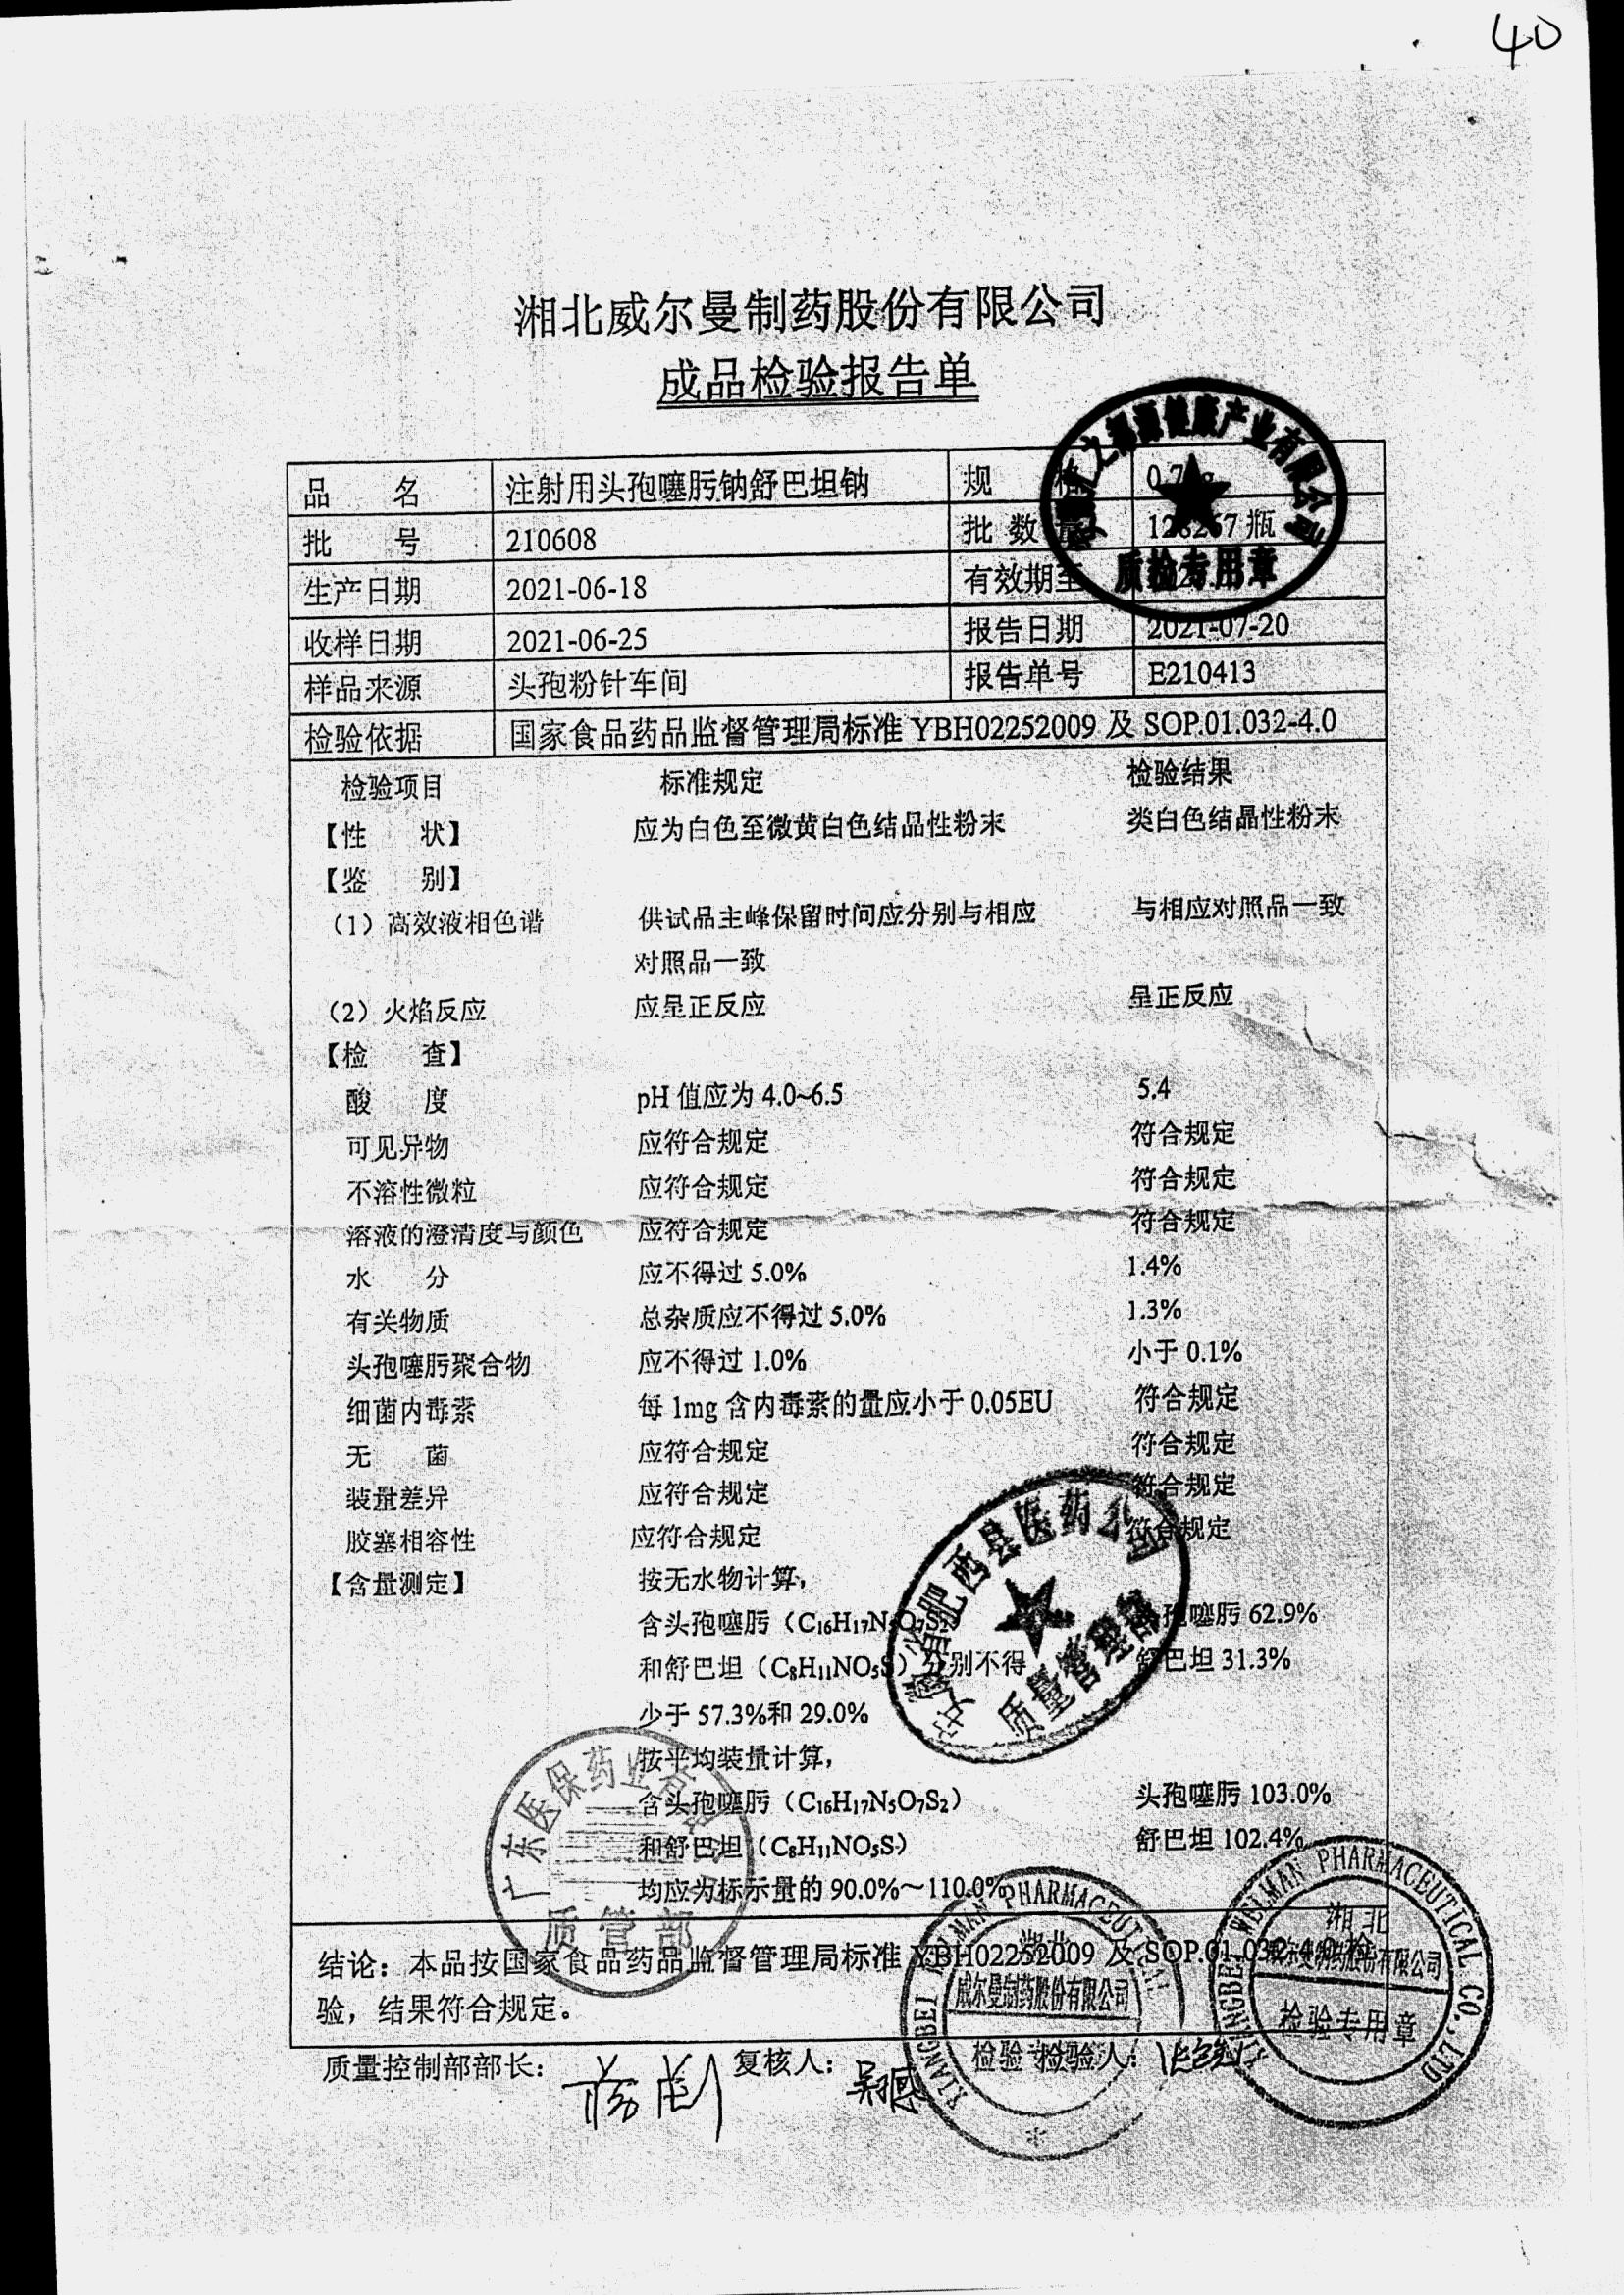 40
湘北威尔曼制药股份有限公司
成品检验报告单
品 名 注射用头孢噻肟钠舒巴坦钠 规 格
批 号 210608 批 数 量 瓶
生产日期 2021-06-18 有效期至
收样日期 2021-06-25 报告日期 2021-07-20
样品来源 头孢粉针车间 报告单号 E210413
检验依据 国家食品药品监督管理局标准 YBH02252009 及 SOP.01.032-4.0
检验项目 标准规定 检验结果
【性 状】 应为白色至微黄白色结晶性粉末 类白色结晶性粉末
【鉴 别】
(1) 高效液相色谱 供试品主峰保留时间应分别与相应 与相应对照品一致
对照品一致
(2) 火焰反应 应呈正反应 呈正反应
【检 查】
酸 度 pH 值应为 4.0~6.5 5.4
可见异物 应符合规定 符合规定
不溶性微粒 应符合规定 符合规定
溶液的澄清度与颜色 应符合规定 符合规定
水 分 应不得过 5.0% 1.4%
有关物质 总杂质应不得过 5.0% 1.3%
头孢噻肟聚合物 应不得过 1.0% 小于 0.1%
细菌内毒素 每 1mg 含内毒素的量应小于 0.05EU 符合规定
无 菌 应符合规定 符合规定
装量差异 应符合规定 符合规定
胶塞相容性 应符合规定 符合规定
【含量测定】 按无水物计算，
含头孢噻肟（C16H17N5O7S2 头孢噻肟 62.9%
和舒巴坦（C8H11NO5S）分别不得 舒巴坦 31.3%
少于 57.3%和 29.0%
按平均装量计算，
含头孢噻肟（C16H17N5O7S2） 头孢噻肟 103.0%
和舒巴坦（C8H11NO5S） 舒巴坦 102.4%
均应为标示量的 90.0%～110.0%
结论：本品按国家食品药品监督管理局标准 YBH02252009 及 SOP.01.032-4.0 检
验，结果符合规定。
质量控制部部长： 复核人： 检验人：
健康产业有限公司
质检专用章
安徽省肥西县医药公司
质量管理部
广东医保药业有
质管部
XIANGBEI WELMAN PHARMACEUTICAL
湘北
威尔曼制药股份有限公司
检验专
XIANGBEI WELMAN PHARMACEUTICAL CO.,LTD
湘北
威尔曼制药股份有限公司
检验专用章